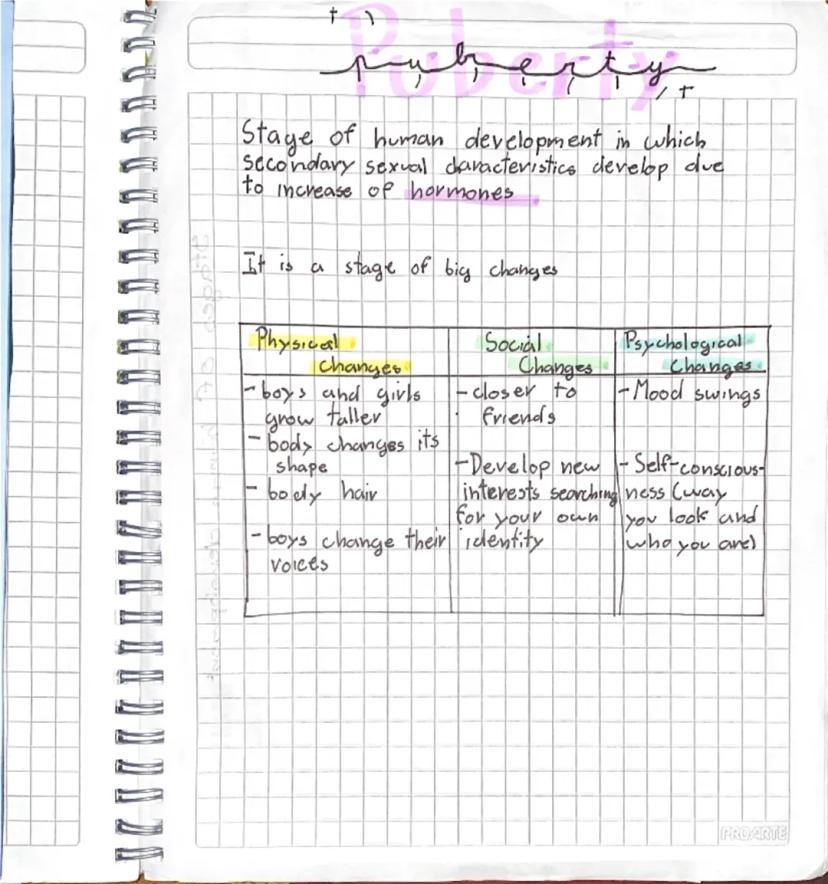 Puberty
puberty
Stage of human development in which
secondary sexual daracteristics develop due
to increase of hormones
It is a stage of big changes
Physical
changes
- boys and girls
grow taller
- body changes its
shape
- body hair
- boys change their
voices
Social
Changes
- closer to
friends
- Develop new
interests searching
for your own
identity
Psychological
Changes
- Mood swings
- Self-conscious-
ness (way
you look and
who you are)
PROARTE